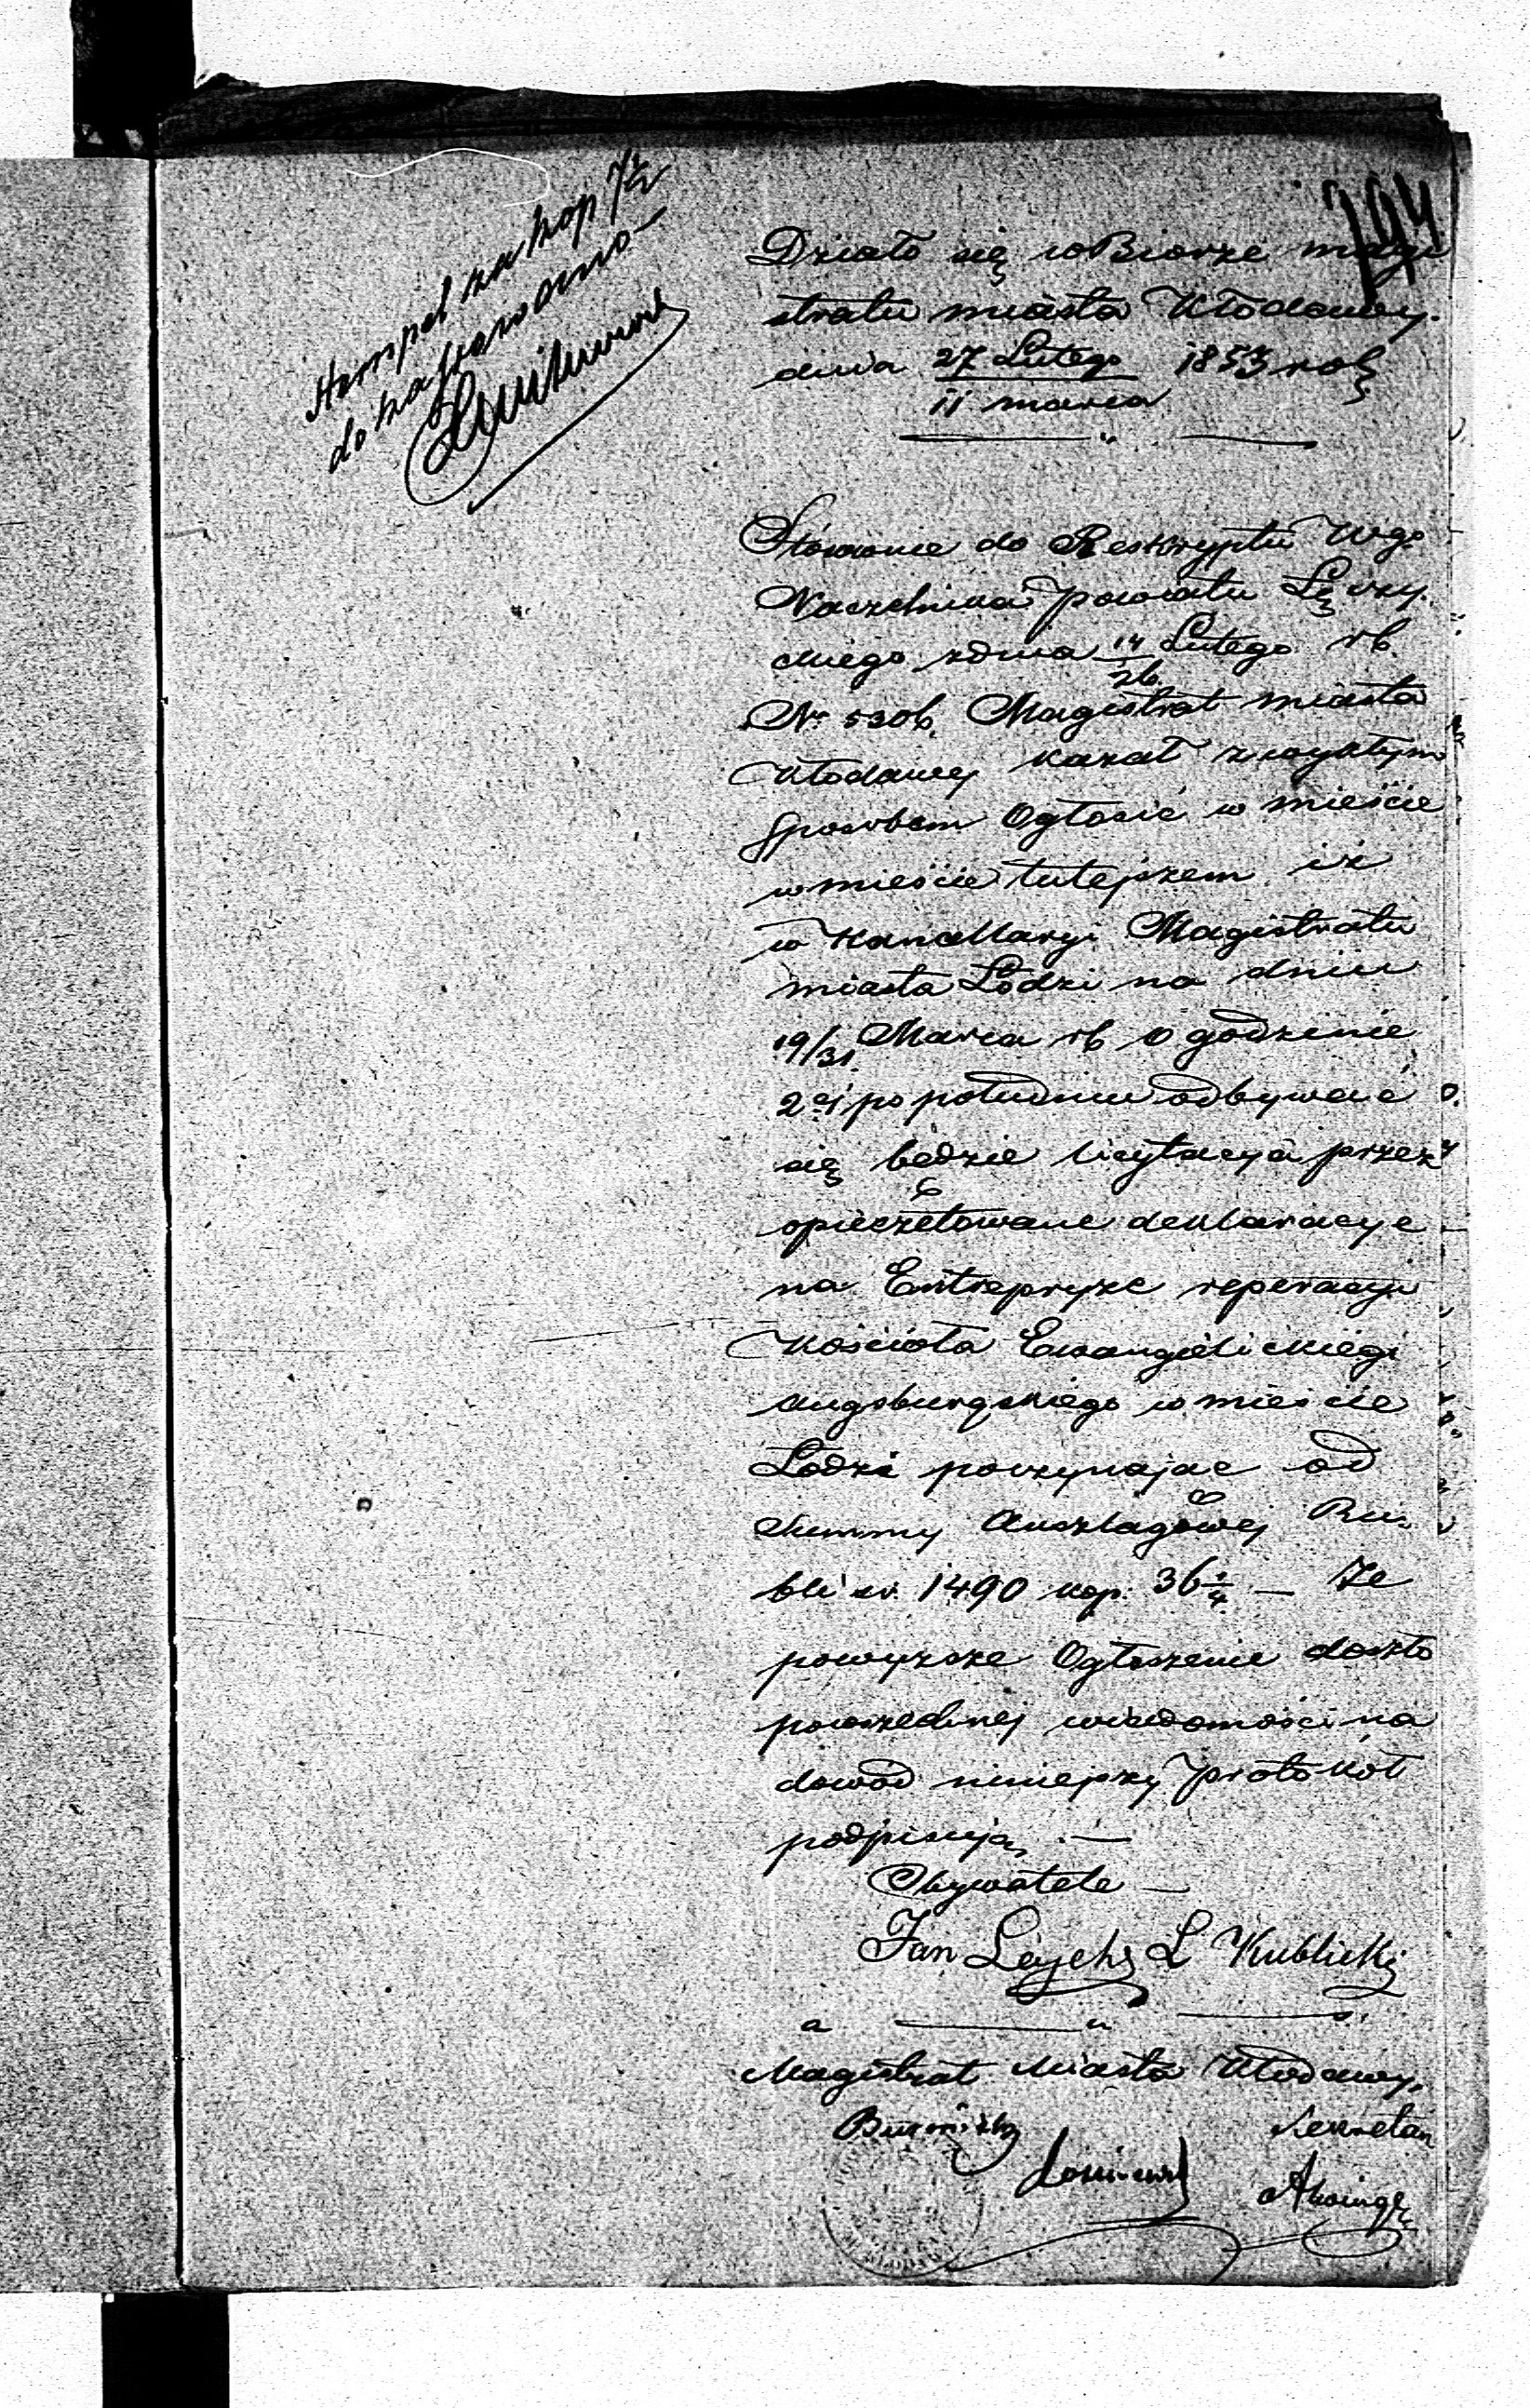 Stempel za kop 7½
do nakassowano
194
Działo się w Biórze magi
stratu miasta Kłodawy.
dnia 27 Lutego 1853 rok
11 marca
Stósownie do Reskryptu Wgo
Naczelnika powiatu Łęczy
ckiego zdnia 14 Lutego rb.
26.
No 5306. Magistrat miasta
Kłodawy kazał zwykłym
Sposobem Ogłosić w mieście
w mieście tutejszem iż
w Kancellaryi Magistratu
miasta Łodzi na dniu
19/31 Marca rb o godzinie
2ej po południu odbywać
się będzie licytacya przez
opieczętowane deklaracye
na Entrepryze reperacyi
Kościoła Ewangielickiego
Augsburgskiego w mieście
Łodzi poczynając od
Summy Anszlagowej Ru
bli sr. 1490 kop. 36¼ — Że
powyższe Ogłoszenie doszło
powszechnej wiadomości na
dowód niniejszy protokół
podpisują —
Obywatele —
Jan L Kublicki
Magistrat Miasta Kłodawy.
Burmistrz Sekretarz